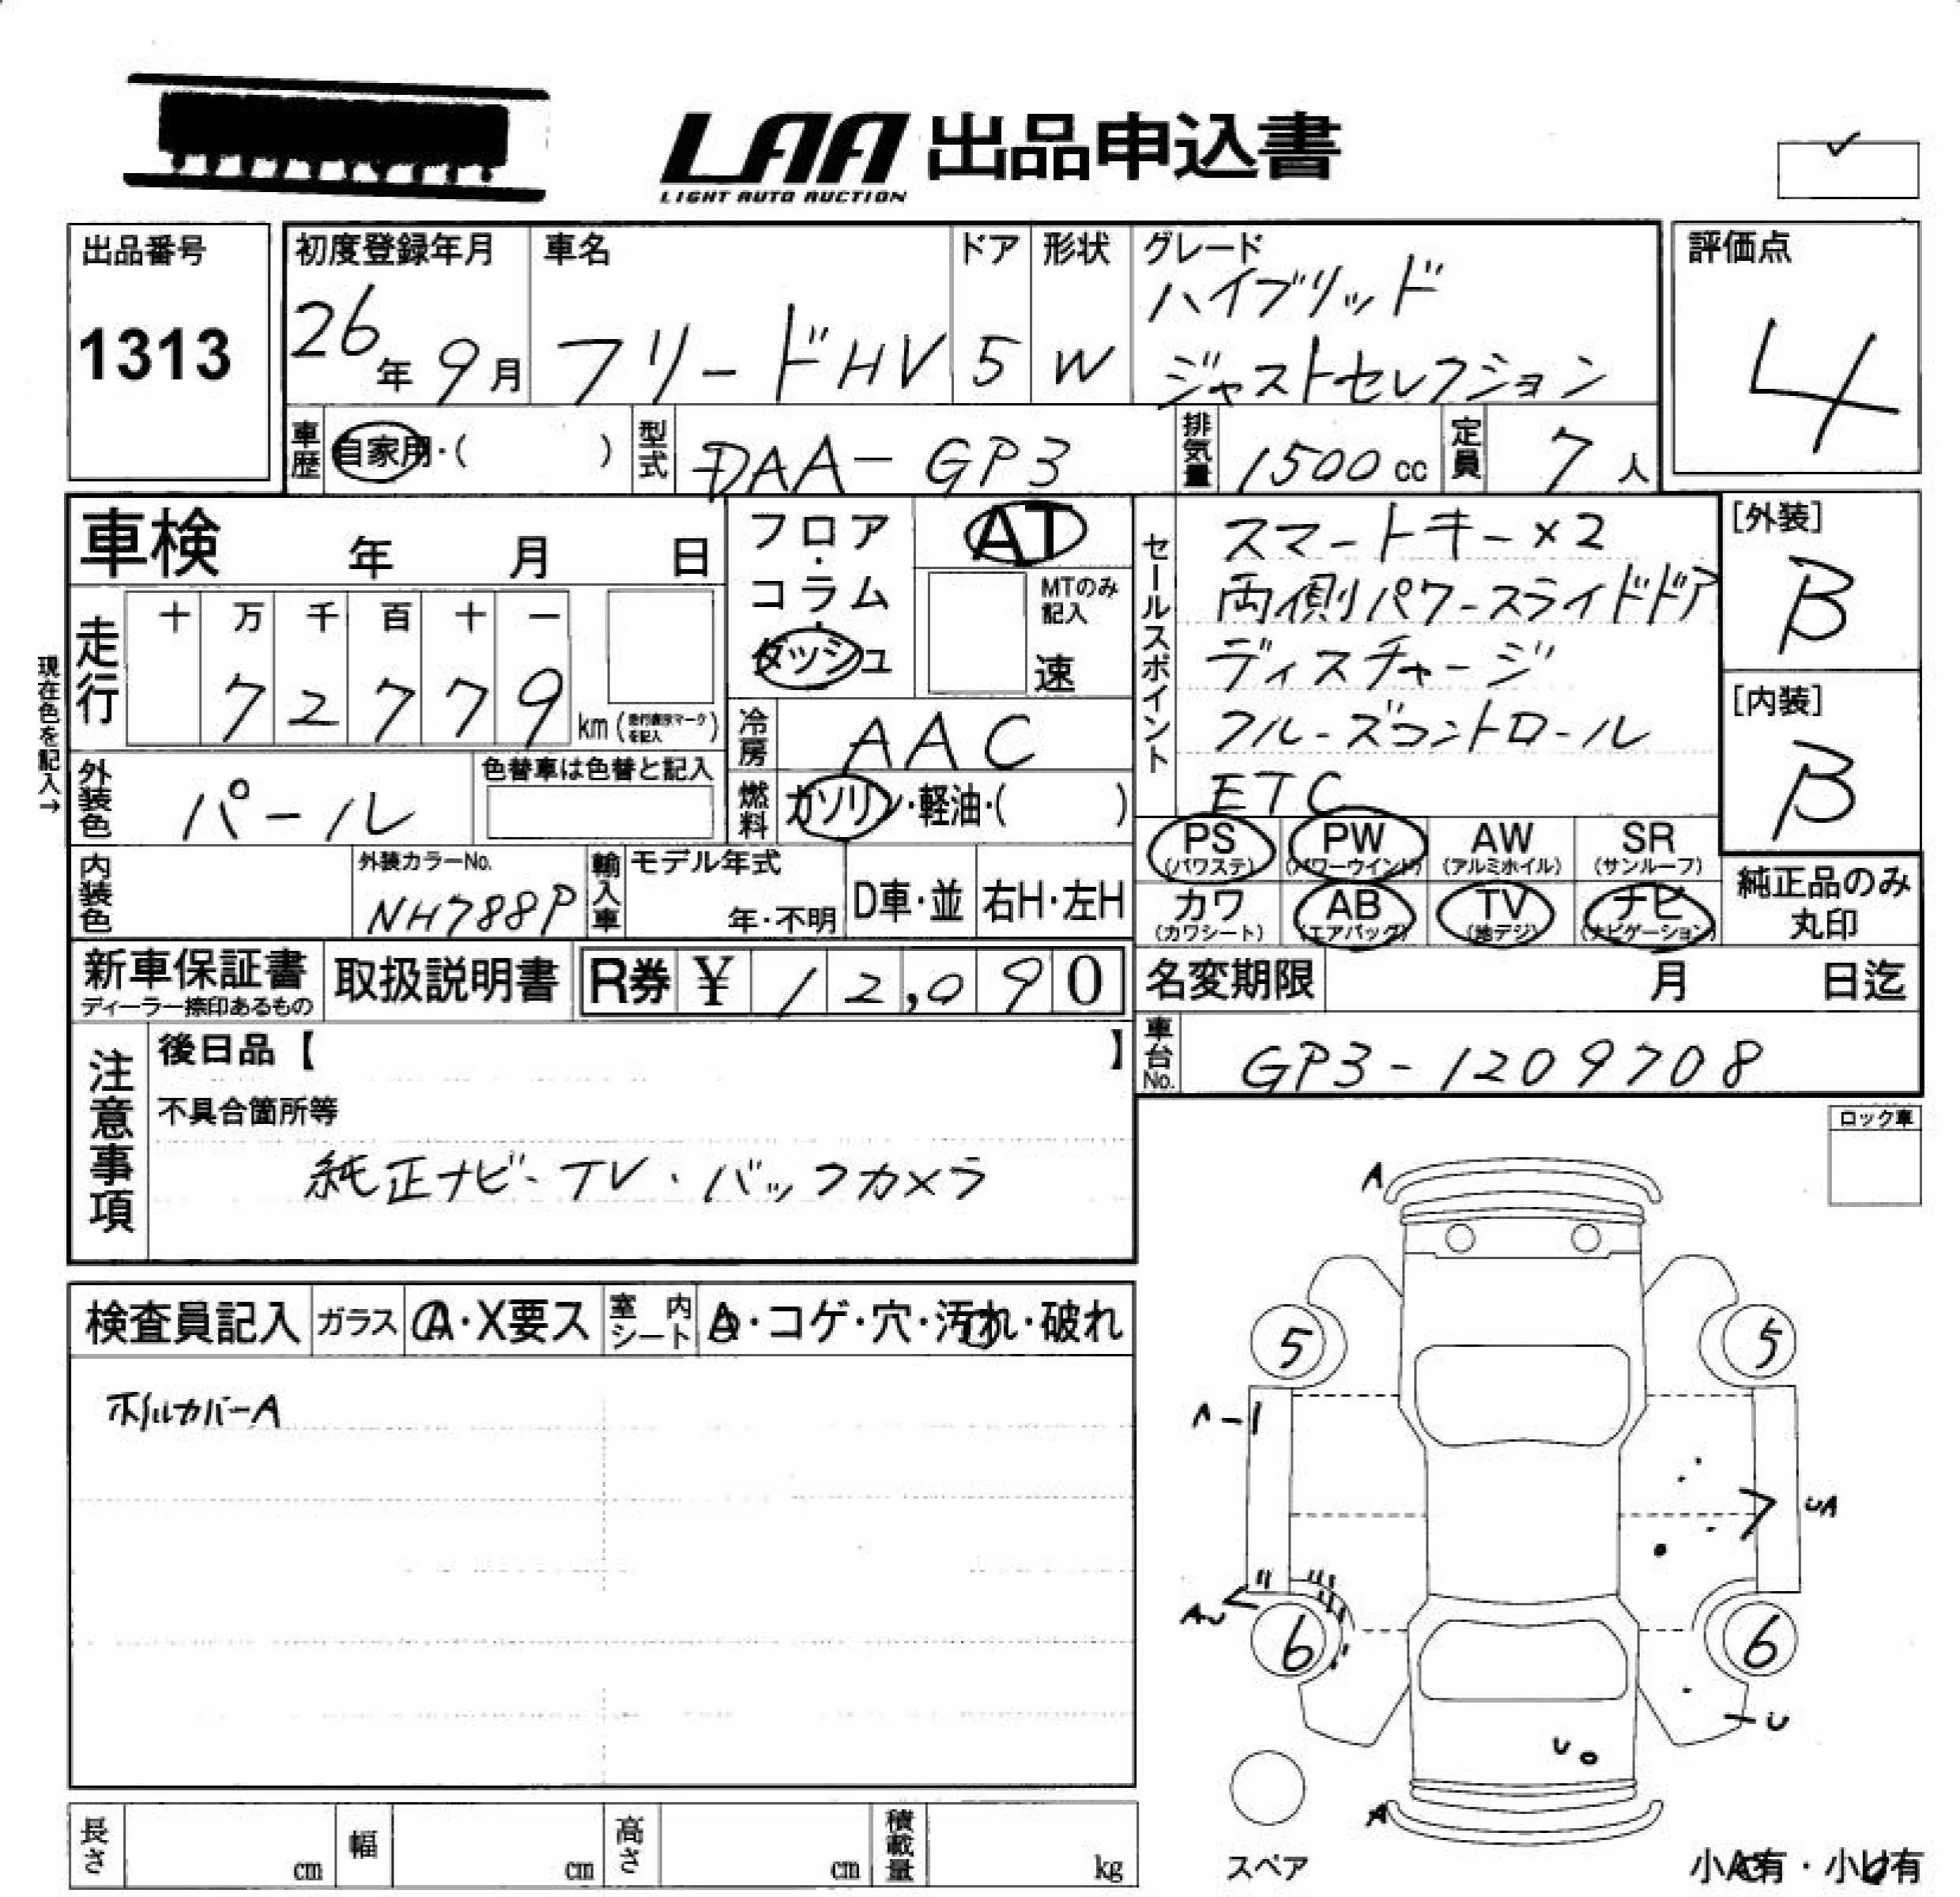 LAA 出品申込書
LIGHT AUTO AUCTION
出品番号
1313
初度登録年月
26年 9月
車名
フリードHV
ドア
5
形状
W
グレード
ハイブリッド
ジャストセレクション
評価点
4
車歴
自家用・( )
型式
DAA-GP3
排気量
1500 cc
定員
7 人
車検 年 月 日
フロア・コラム・ダッシュ
AT
MTのみ記入
速
セールスポイント
スマートキー×2
両側パワースライドドア
ディスチャージ
クルーズコントロール
ETC
[外装]
B
[内装]
B
現在色を記入→
走行
十 万 千 百 十 一
7 2 7 7 9
km(
を記入 )
冷房
AAC
外装色
パール
色替車は色替と記入
燃料
ガソリン・軽油・( )
PS
(パワステ)
PW
(パワーウインド)
AW
(アルミホイル)
SR
(サンルーフ)
内装色
外装カラーNo.
NH788P
輸入車
モデル年式
年・不明
D車・並
右H・左H
カワ
(カワシート)
AB
(エアバック)
TV
(地デジ)
ナビ
(ナビゲーション)
純正品のみ
丸印
新車保証書
ディーラー捺印あるもの
取扱説明書
R券 ¥ 12,090
名変期限 月 日迄
車台No.
GP3-1209708
注意事項
後日品【 】
不具合箇所等
純正ナビ・TV・バックカメラ
ロック車
検査員記入
ガラス
A・X要ス
室内シート
A・コゲ・穴・汚れ・破れ
ホイルカバーA
A
5 5
A-1
UA
AU
6 6
U
U
A
スペア
小A有・小U有
長さ cm
幅 cm
高さ cm
積載量 kg